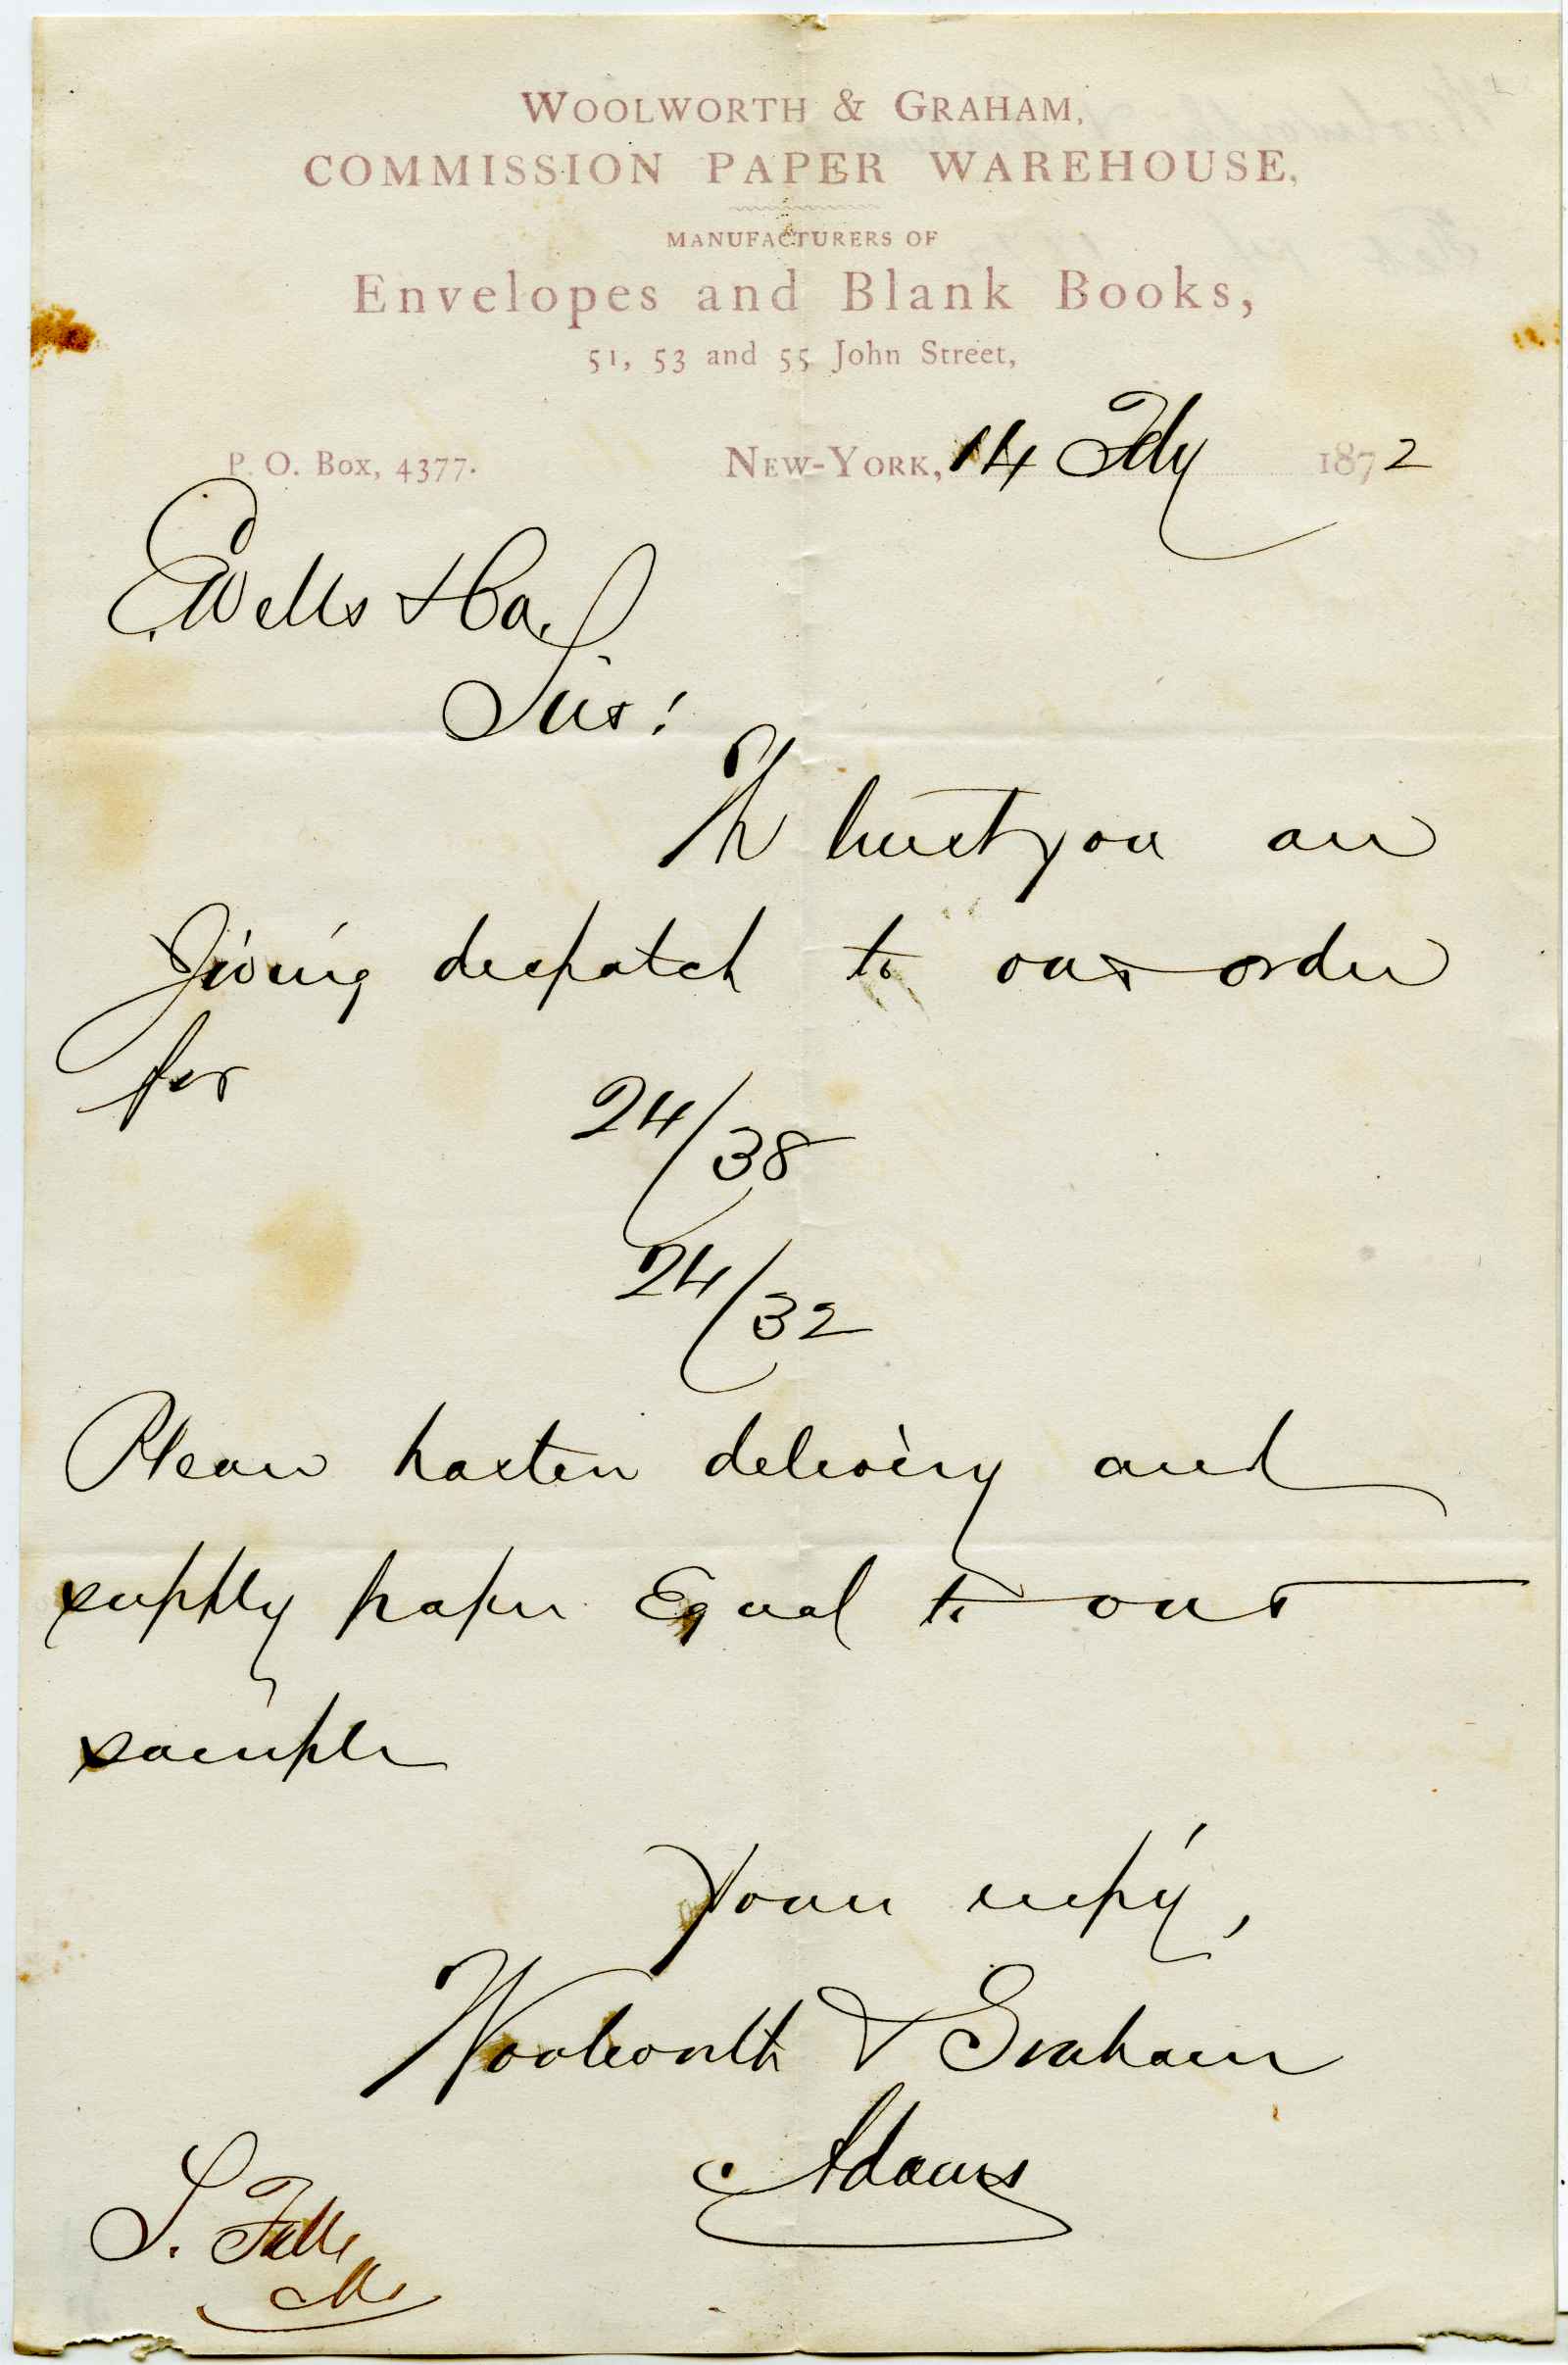 WOOLWORTH & GRAHAM,
COMMISSION PAPER WAREHOUSE,
MANUFACTURERS OF
Envelopes and Blank Books,
51, 53 and 55 John Street,
P. O. Box, 4377.
NEW-YORK, 14 Feby 1872
E Wells & Co.
Sirs!
We trust you are
Giving despatch to our order
for
24/38
24/32
Please hasten delivery and
supply paper Equal to our
sample
Yours respy,
Woolworth & Graham
Adams